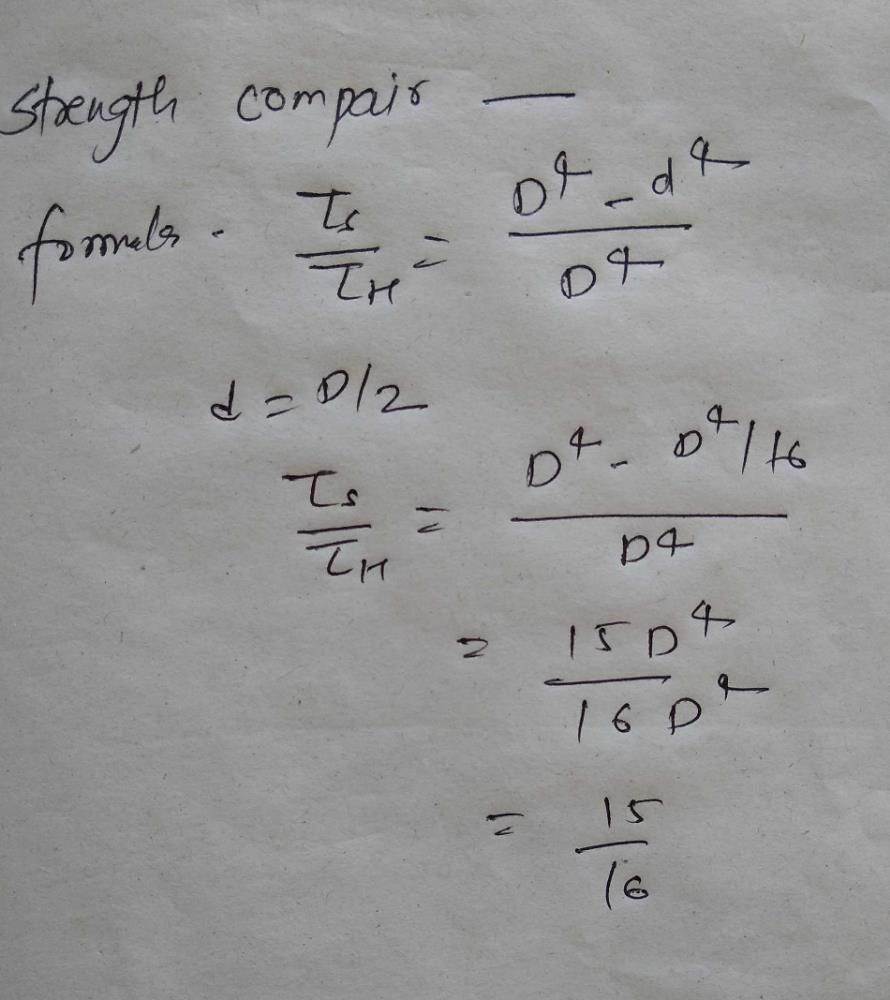 Strength compair —
formula. τs/τH = D⁴ - d⁴ / D⁴
d = D/2
τs/τH = D⁴ - D⁴/16 / D⁴
= 15D⁴ / 16D⁴
= 15/16